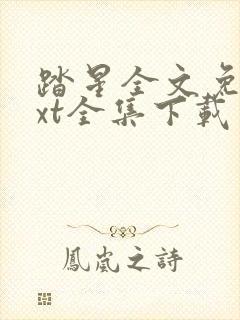 踏星全文免
xt全集下載
鳳嵐之詩